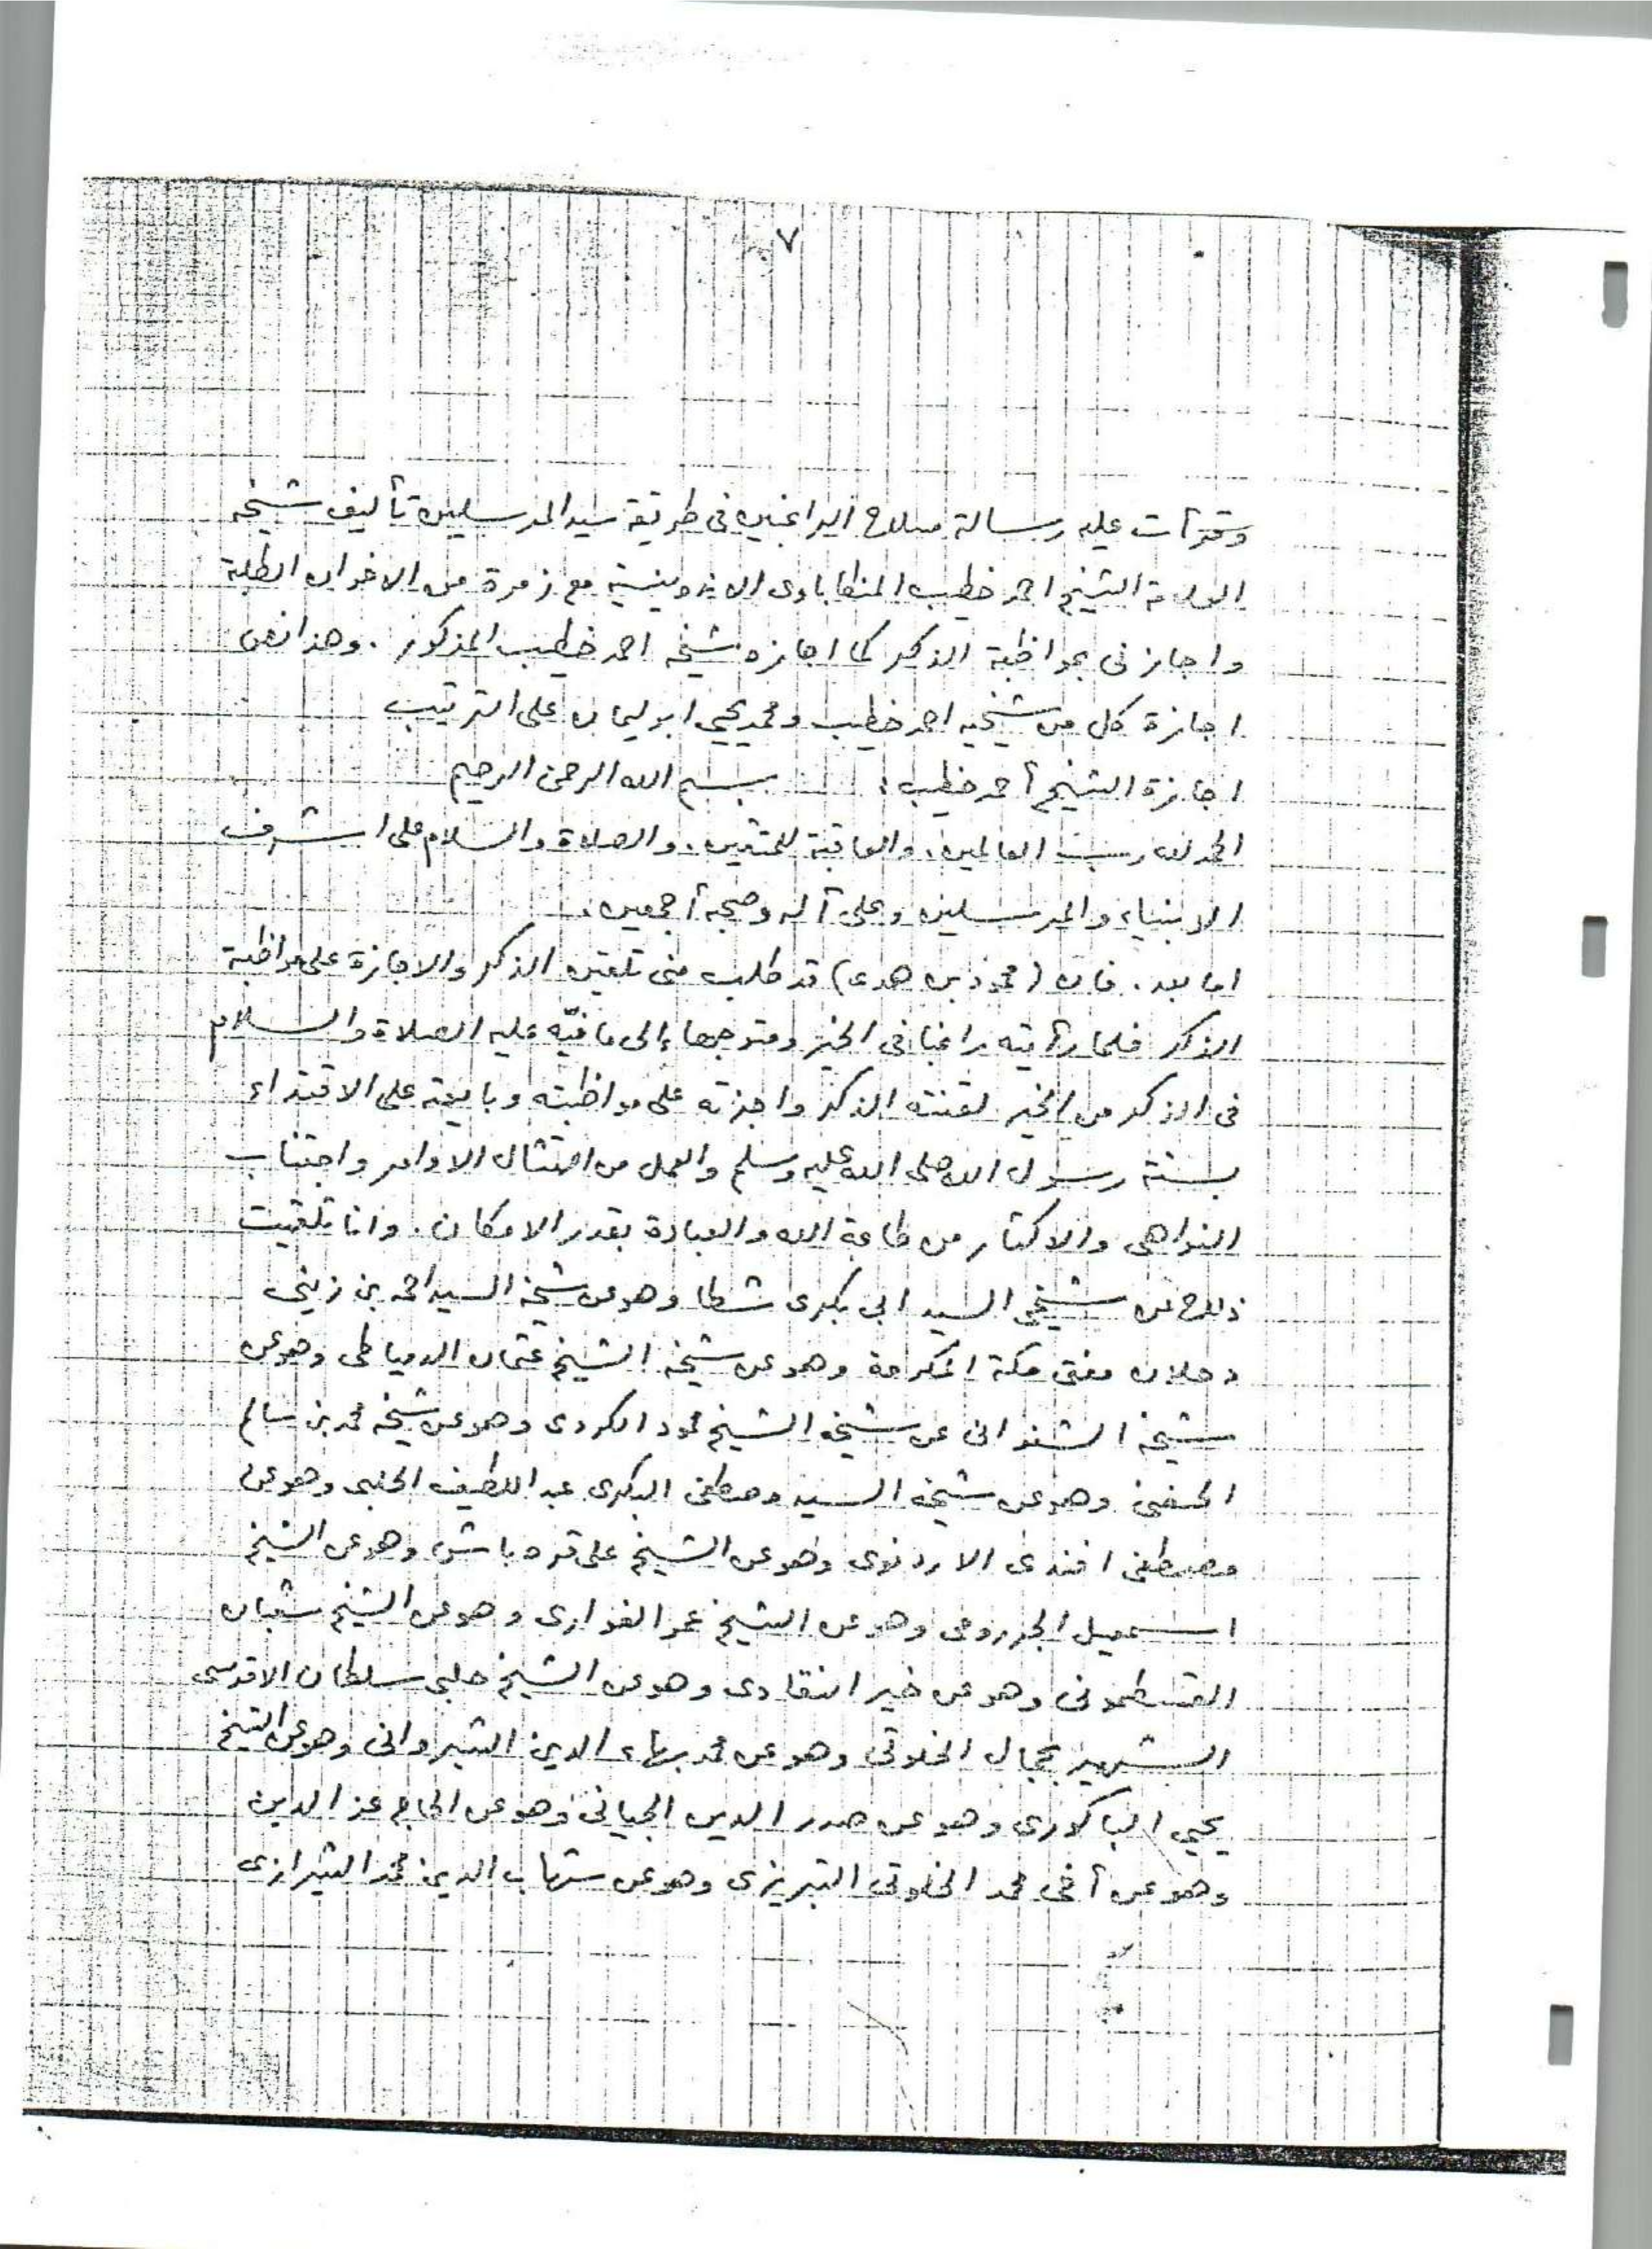 ٧
وقرأت عليه رسالة مسلك الراغبين فى طريقة سيد المرسلين تأليف شيخه
العلامة الشيخ احمد خطيب المنكاباوى الاندونيسية مع زمرة من الاخوان الطلبة
واجازنى بمواظبة الذكر كما اجازه شيخه احمد خطيب المذكور . وهذا نص
اجازة كل من شيخيه احمد خطيب ومحمد يحيى ابوليمان على الترتيب
اجازة الشيخ أحمد خطيب : بسم الله الرحمن الرحيم
الحمد لله رب العالمين . والعاقبة للمتقين . والصلاة والسلام على اشرف
الانبياء والمرسلين وعلى آله وصحبه أجمعين .
اما بعد . فان (محمود بن هدى) قد طلب منى تلقين الذكر والاجازة على مواظبة
الذكر فلما رأيته راغبا فى الخير ومتوجها إلى ما فيه عليه الصلاة والسلام
فى الذكر من الخير لقنته الذكر واجزته على مواظبته وبايعته على الاقتداء
بسنة رسول الله صلى الله عليه وسلم والعمل من امتثال الاوامر واجتناب
النواهى والاكثار من طاعة الله والعبادة بقدر الامكان . وانا تلقيت
ذلك عن شيخى السيد ابى بكرى شطا وهو عن شيخه السيد احمد بن زينى
دحلان مفتى مكة المكرمة وهو عن شيخه الشيخ عثمان الدمياطى وهو عن
شيخه الشنوانى عن شيخه الشيخ محمود الكردى وهو عن شيخه محمد بن سالم
الحفنى وهو عن شيخه السيد مصطفى البكرى عبد اللطيف الحلبى وهو عن
مصطفى افندى الادرنوى وهو عن الشيخ على قره باش وهو عن الشيخ
اسمعيل الجرومى وهو عن الشيخ عمر الفوادى وهو عن الشيخ شعبان
القسطمونى وهو عن خير النقادى وهو عن الشيخ حلبى سلطان الاقدسى
الشهير بجمال الخلوتى وهو عن محمد بهاء الدين الشيروانى وهو عن الشيخ
يحيى الباكورى وهو عن صدر الدين الجيانى وهو عن الحاج عز الدين
وهو عن أخى محمد الخلوتى التبريزى وهو عن شهاب الدين محمد الشيرازى